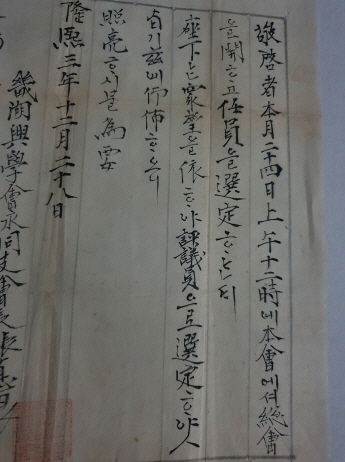 敬啓者本月二十四日上午十二時에本會에셔總會
을開ᄒᆞ고任員을選定ᄒᆞ온ᄃᆡ
座下ᄂᆞᆫ衆望을依ᄒᆞ야評議員으로選定ᄒᆞ야ᄉᆞ
기玆에仰佈ᄒᆞ오니
照亮ᄒᆞ시믈爲要
隆熙三年十二月二十八日
畿湖興學會永同支會長張